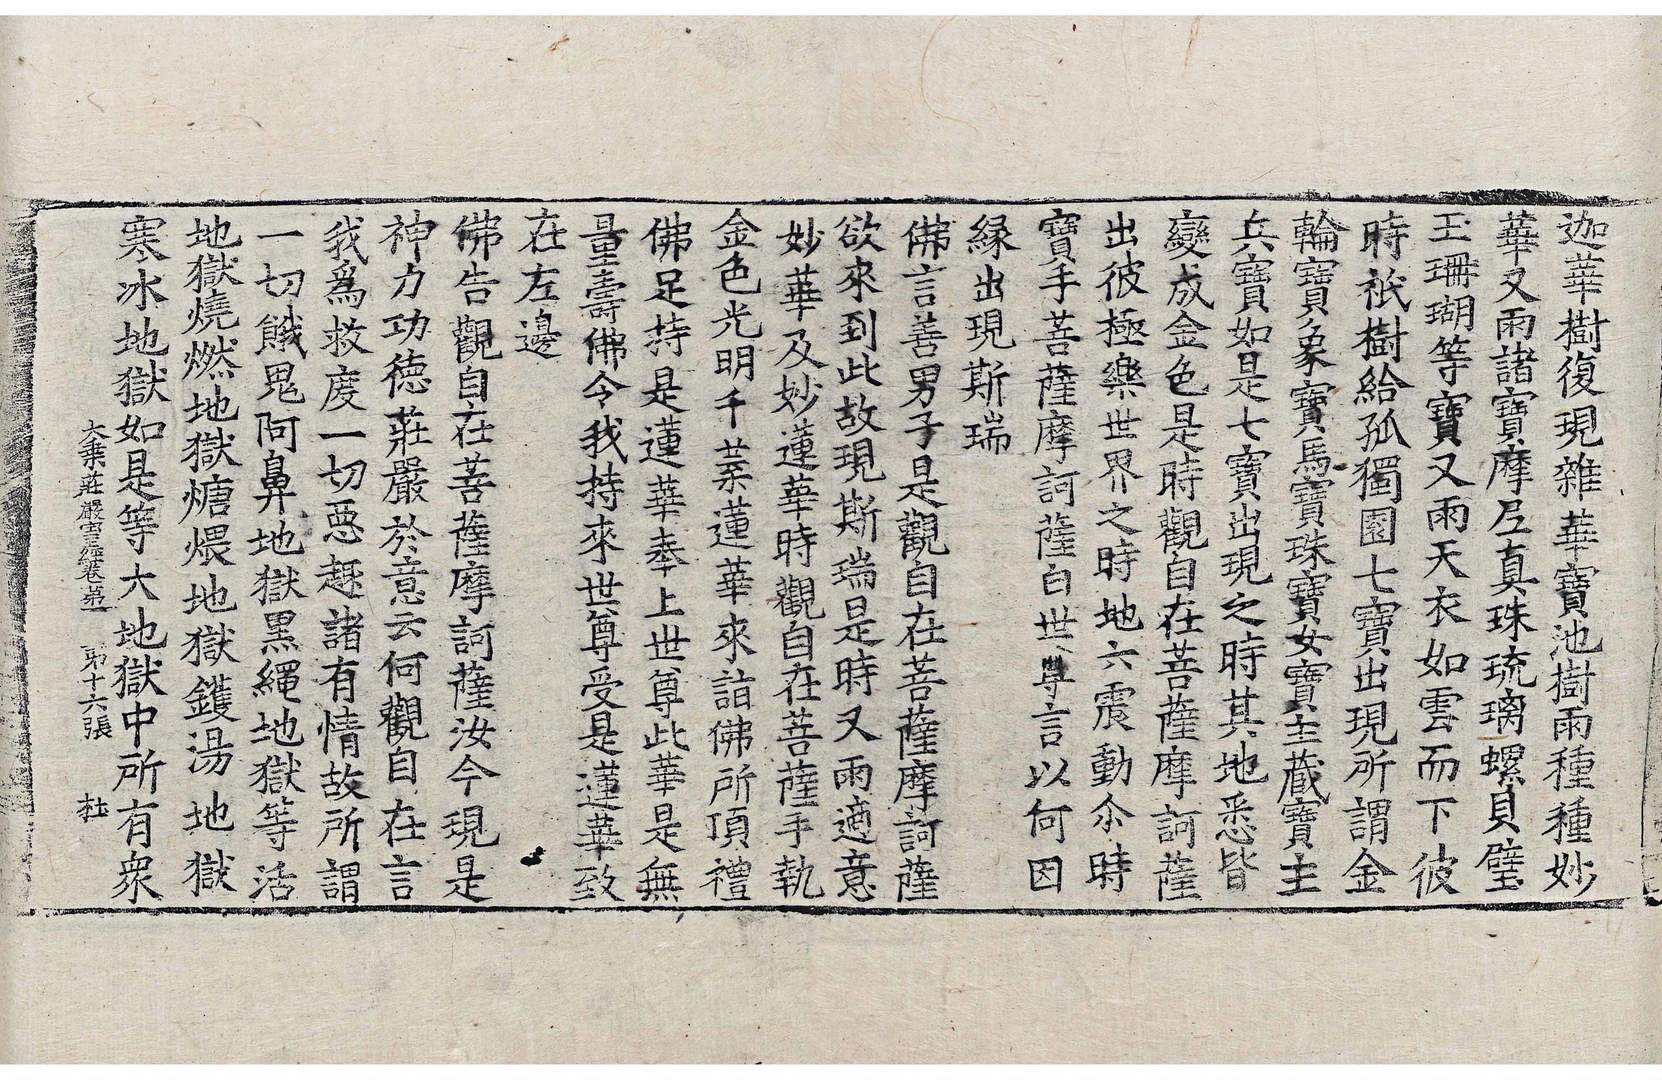 迦華樹復現雜華寶池樹雨種種妙
華又雨諸寶摩尼真珠琉璃螺貝璧
玉珊瑚等寶又雨天衣如雲而下彼
時祇樹給孤獨園七寶出現所謂金
輪寶象寶馬寶珠寶女寶主藏寶主
兵寶如是七寶出現之時其地悉皆
變成金色是時觀自在菩薩摩訶薩
出彼極樂世界之時地六震動尒時
寶手菩薩摩訶薩白世尊言以何因
緣出現斯瑞
佛言善男子是觀自在菩薩摩訶薩
欲來到此故現斯瑞是時又雨適意
妙華及妙蓮華時觀自在菩薩手執
金色光明千葉蓮華來詣佛所頂禮
佛足持是蓮華奉上世尊此華是無
量壽佛令我持來世尊受是蓮華致
在左邊
佛告觀自在菩薩摩訶薩汝今現是
神力功德莊嚴於意云何觀自在言
我爲救度一切惡趣諸有情故所謂
一切餓鬼阿鼻地獄黑繩地獄等活
地獄燒燃地獄煻煨地獄鑊湯地獄
寒冰地獄如是等大地獄中所有衆
大乗莊嚴寶王經卷苐一 苐十六張 杜